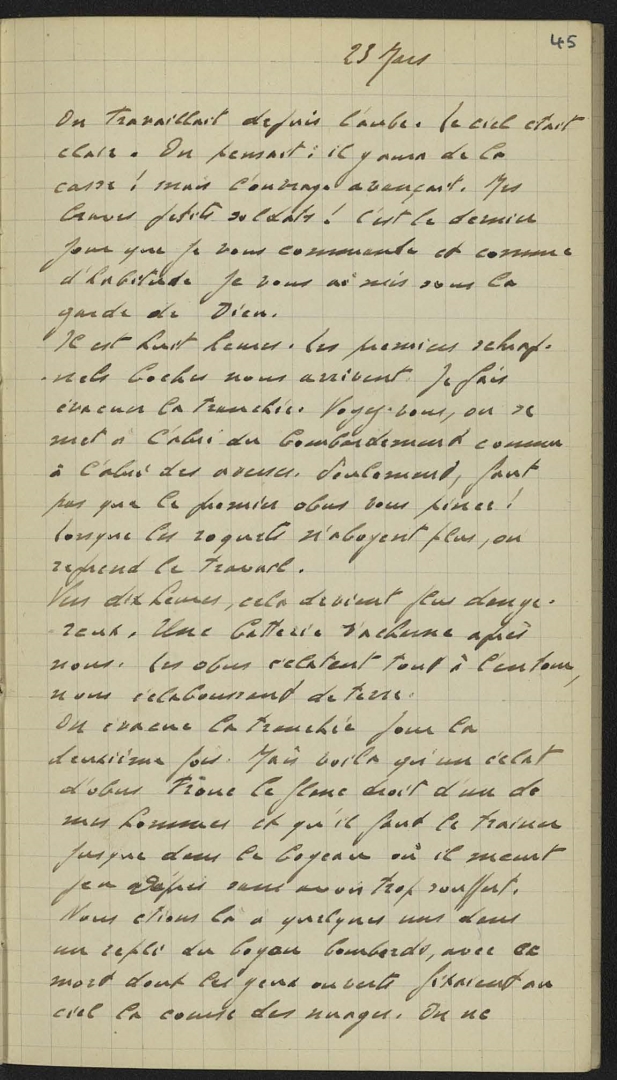 45
23 Mars
On travaillait depuis l'aube. Le ciel était
clair. On pensait : il y aura de la
casse ! mais l'ouvrage avançait. Mes
braves petits soldats ! C'est le dernier
jour que je vous commande et comme
d'habitude je vous ai mis sous la
garde de Dieu.
Il est huit heures. Les premiers schrap-
-nels boches nous arrivent. Je fais
évacuer la tranchée. Voyez-vous, on se
met à l'abri du bombardement comme
à l'abri des averses. Seulement, faut
pas que le premier obus vous pince !
Lorsque les roquets n'aboyent plus, on
reprend le travail.
Vers dix heures, cela devient plus dange-
reux. Une batterie s'acharne après
nous. Les obus éclatent tout à l'entour,
nous éclaboussant de terre.
On évacue la tranchée pour la
deuxième fois. Mais voilà qu'un éclat
d'obus troue le flanc droit d'un de
mes hommes et qu'il faut le trainer
jusque dans le boyau où il meurt
peu après sans avoir trop souffert.
Nous étions là à quelques uns dans
un repli du boyau bombardé, avec ce
mort dont les yeux ouverts fixaient au
ciel la course des nuages. On ne